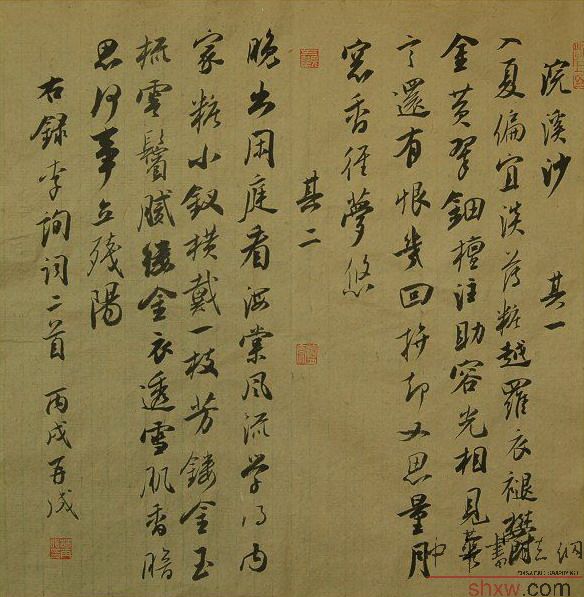 浣溪沙 其一
入夏偏宜淡薄粧越羅衣褪鬱
金黃翠鈿檀注助容光相見
言還有恨幾回拚却又思量月
窓香徑夢悠
其二
晚出閑庭看海棠風流學得内
家粧小釵橫戴一枝芳鏤金玉
梳雲鬢膩縷金衣透雪肌香暗
思何事立殘陽
右錄李詢詞二首 丙戌
shxw.com